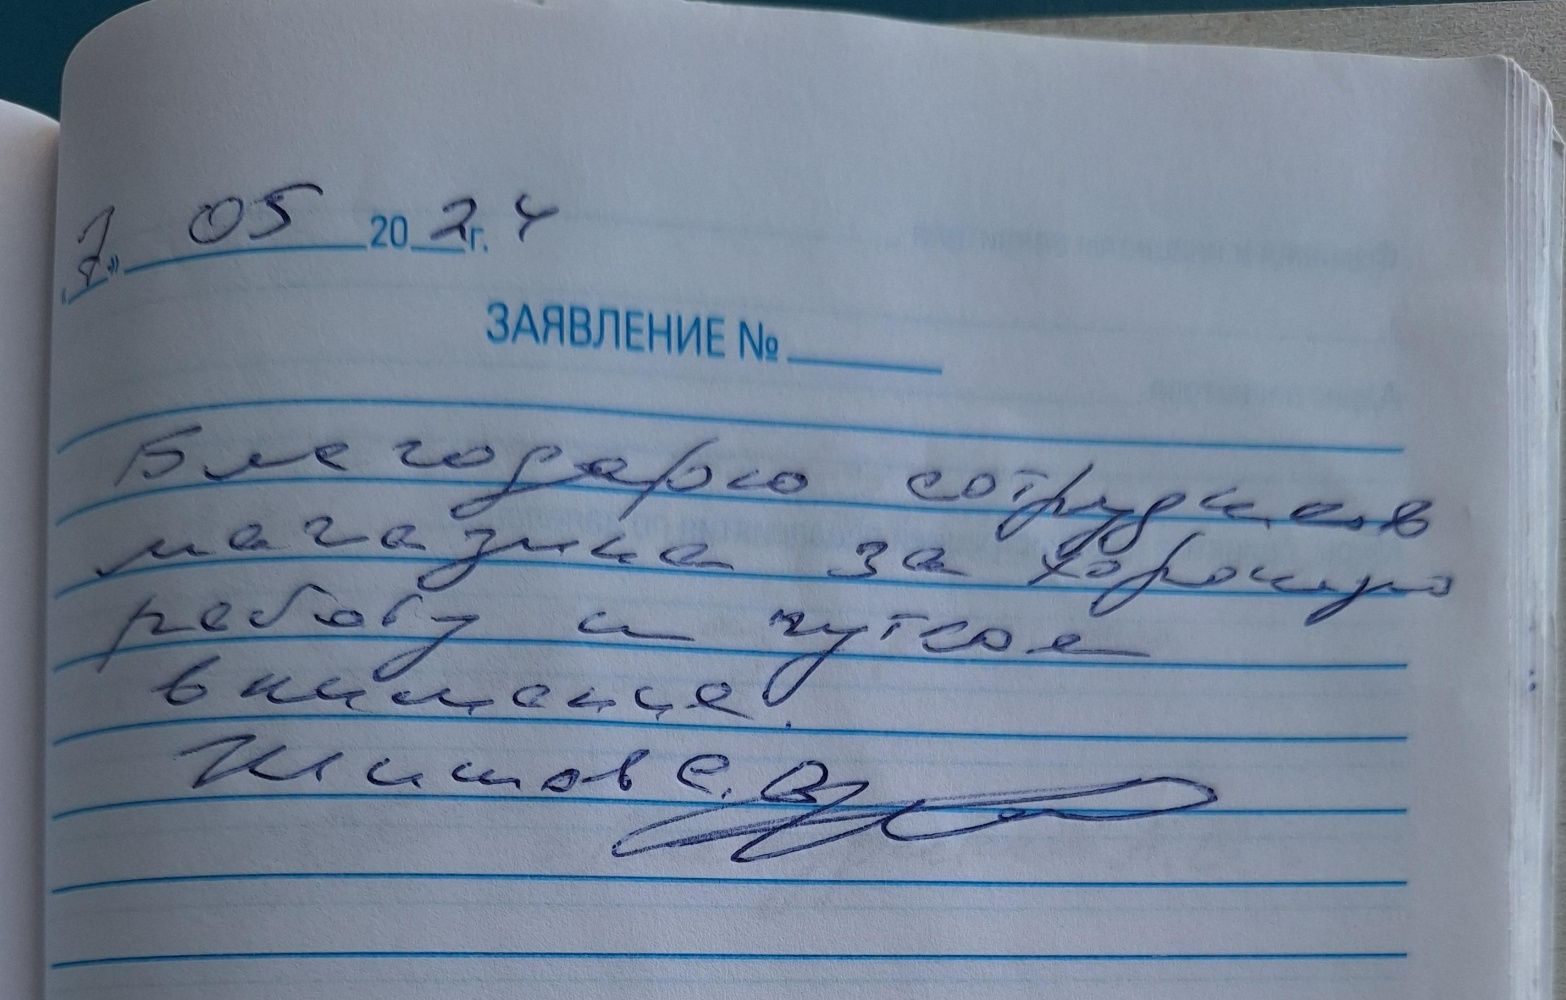 «7» 05 2024 г.
ЗАЯВЛЕНИЕ №
Благодарю сотрудников
магазина за хорошую
работу и чуткое
внимание.
С.